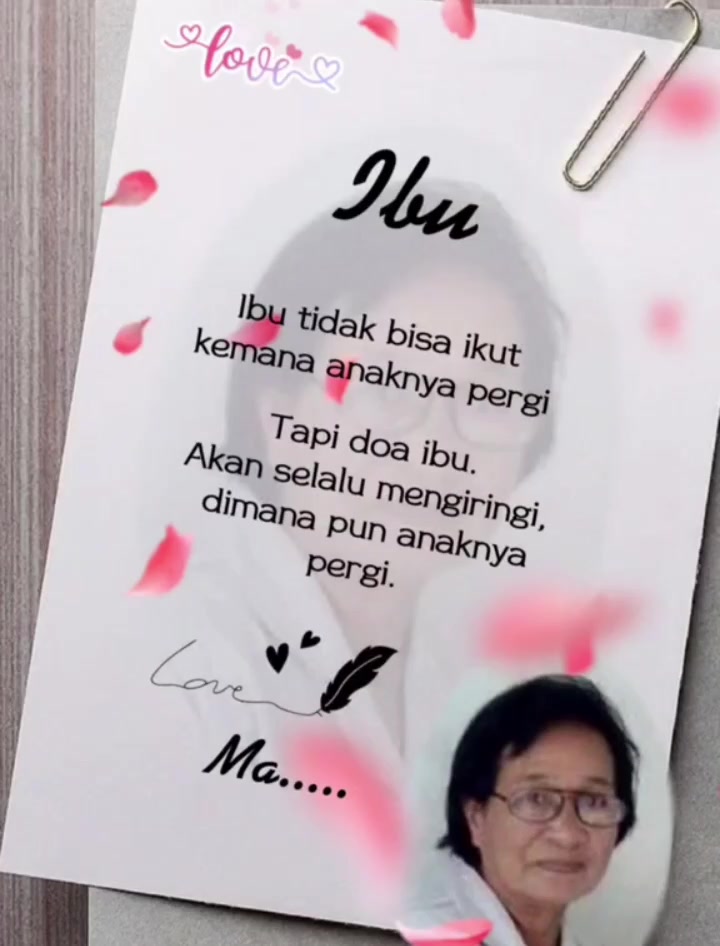 love
Ibu
Ibu tidak bisa ikut
kemana anaknya pergi
Tapi doa ibu.
Akan selalu mengiringi,
dimana pun anaknya
pergi.
Love
Ma.....